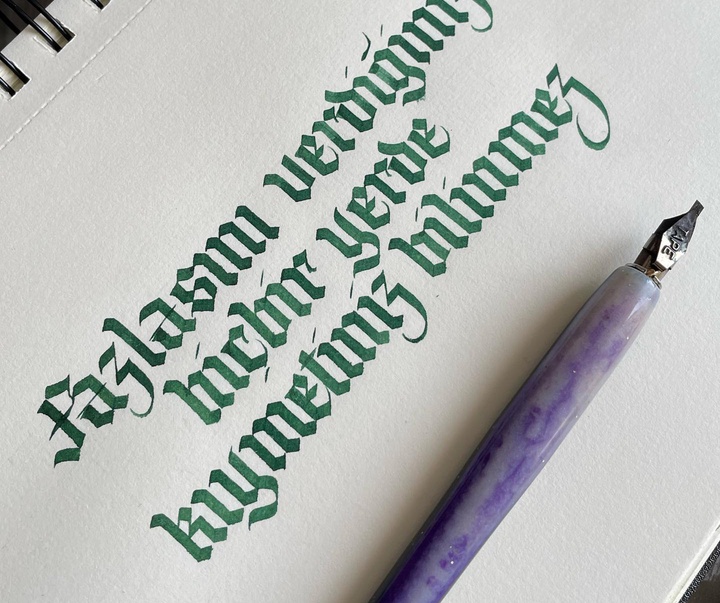 Fazlasını verdiğiniz
hiçbir yerde
kıymetiniz bilinmez